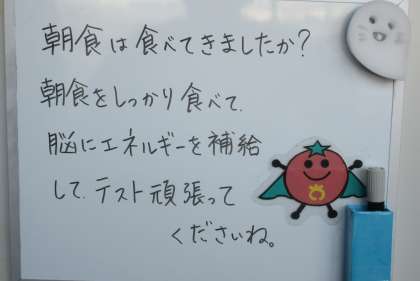 朝食は食べてきましたか?
朝食をしっかり食べて、
脳にエネルギーを補給
して、テスト頑張って
くださいね。